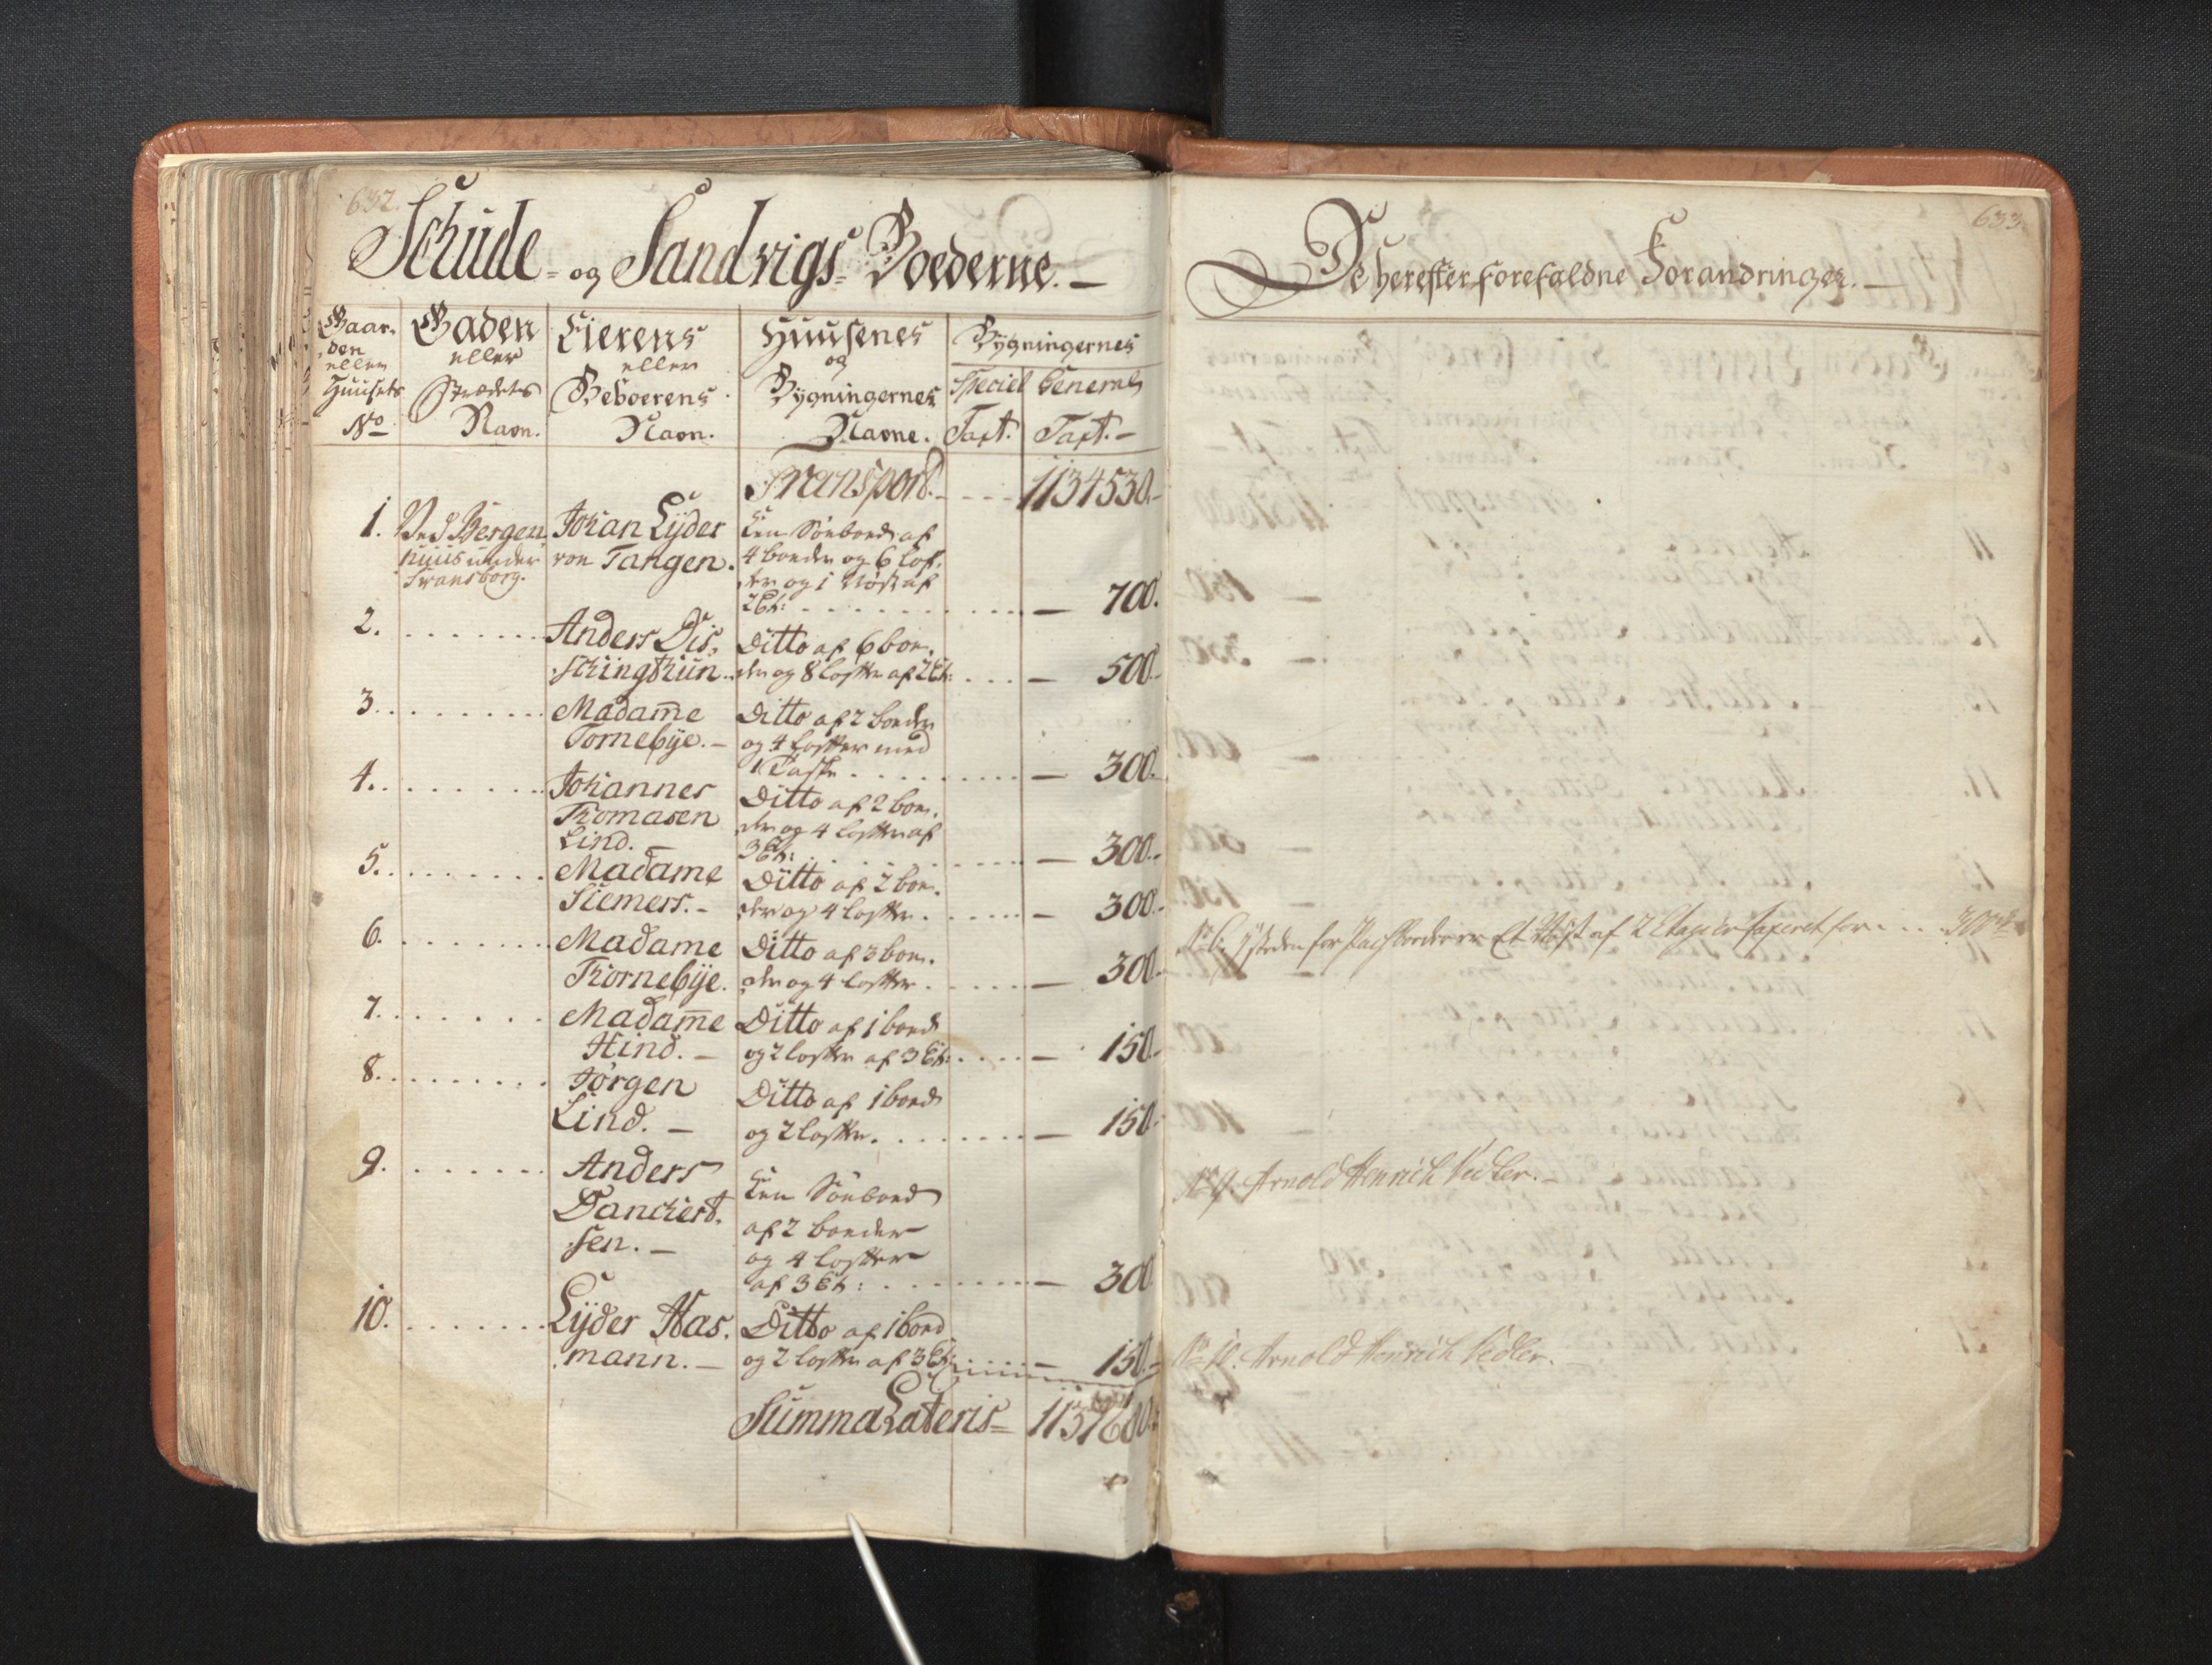 632.
Schude- og Sandvigs-Boederne.-
Gaar-
den
eller
Huusets
No
Gaden
eller
Strædets
Navn.
Eierens
eller
Beboerens
Navn.
Huusenes
og
Bygningernes
Navne.
Bygningernes
Speciel General
Taxt. Taxt.-
Transport. - - - 1134530.-
1. Ved Bergen- Johan Lyder Een Søeboed af
huus under von Tangen. 4 boeder og 6 lof-
Svansborg. ter og 1 Nøst af
2 Et: - 700.
2. Anders Dis- Ditto af 6 boe-
schingthun.. der og 8 lofter af 2 Et: - 500.-
3. Madame Ditto af 2 boeder
Tornebye.- og 4 lofter med
1 - 300.-
4. Johannes Ditto af 2 boe-
Thomasen der og 4 lofter af
Lind.- 3 Et: - 300.-
5. Madame Ditto af 2 boe-
Siemers.- der og 4 lofter. - 300.-
6. Madame Ditto af 3 boe-
Thornebye. der og 4 lofter. - 300.-
7. Madame Ditto af 1 boed
Hind.- og 2 lofter af 3 Et: - 150.-
8. Jørgen Ditto af 1 boed
Lind.- og 2 lofter. - 150.-
9. Anders Een Søeboed
Danchert- af 2 boeder
sen.- og 4 lofter
af 3 Et: - 300.
10. Lyder Has- Ditto af 1 boed
mann.- og 2 lofter af 3 Et: - 150.-
Summa Lateris- 1137680.-
633.
De herefter forefaldne Forandringer.-
No 6. for er Et Nøst af 2 Etagier taxeret for - - - 300
No 9. Arnold Henrich Vedler.-
No 10. Arnold Henrich Vedler.